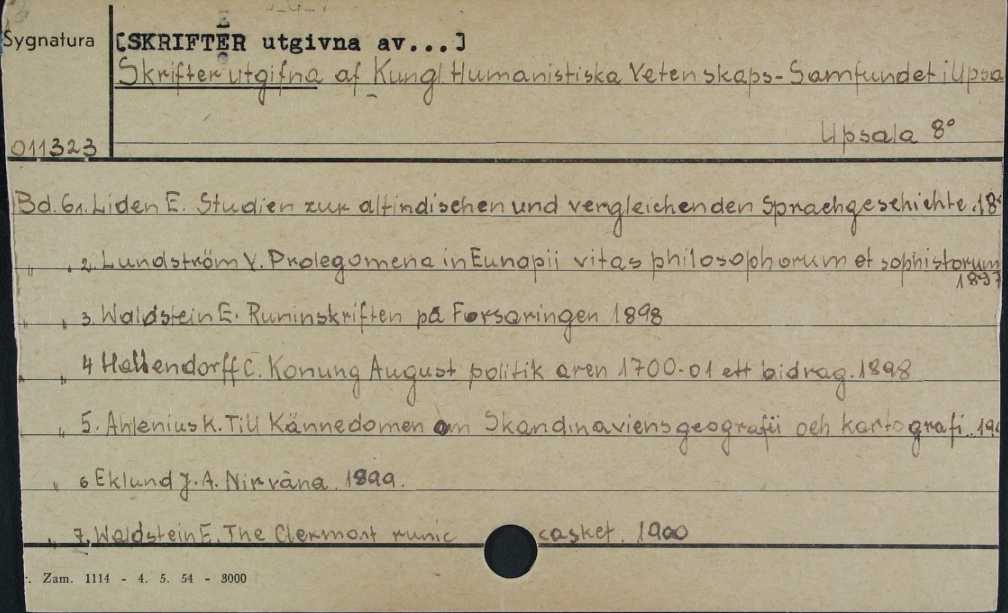 Sygnatura [SKRIFTER utgivna av...]
Skrifter utgifna af Kungl. Humanistiska Vetenskaps-Samfundet i Upsa
Upsala 8°
011323
Bd. 6 1. Liden E. Studien zur altindischen und vergleichenden Sprachgeschichte. 18
„ . 2. Lundström V. Prolegomena in Eunapii vitas philosophorum et sophistorum
1897
„ „ 3 Waldstein E. Runinskriften på Forsaringen 1898
„ „ 4 Hallendorff C. Konung August politik aren 1700-01 ett bidrag. 1898
„ „ 5. Ahlenius K. Till Kännedomen om Skandinaviens geografii och kartografi. 190
„ 6 Eklund J. A. Nirvāna. 1899.
„ 7. Waldstein E. The Clermont runic casket. 1900
. Zam. 1114 - 4. 5. 54 - 3000